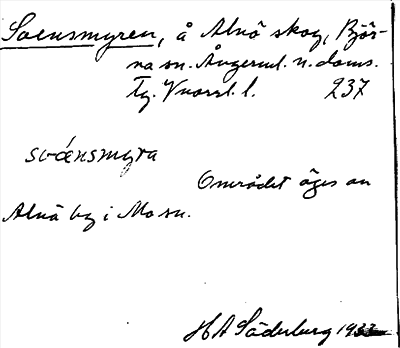 Svensmyren, å Alnä skog, Björ-
na sn. Ångerml. n. doms.
Tg. Vnorrl. l. 237
svensmyra
Området äges av
Alnä by i Mo sn.
H A Söderberg